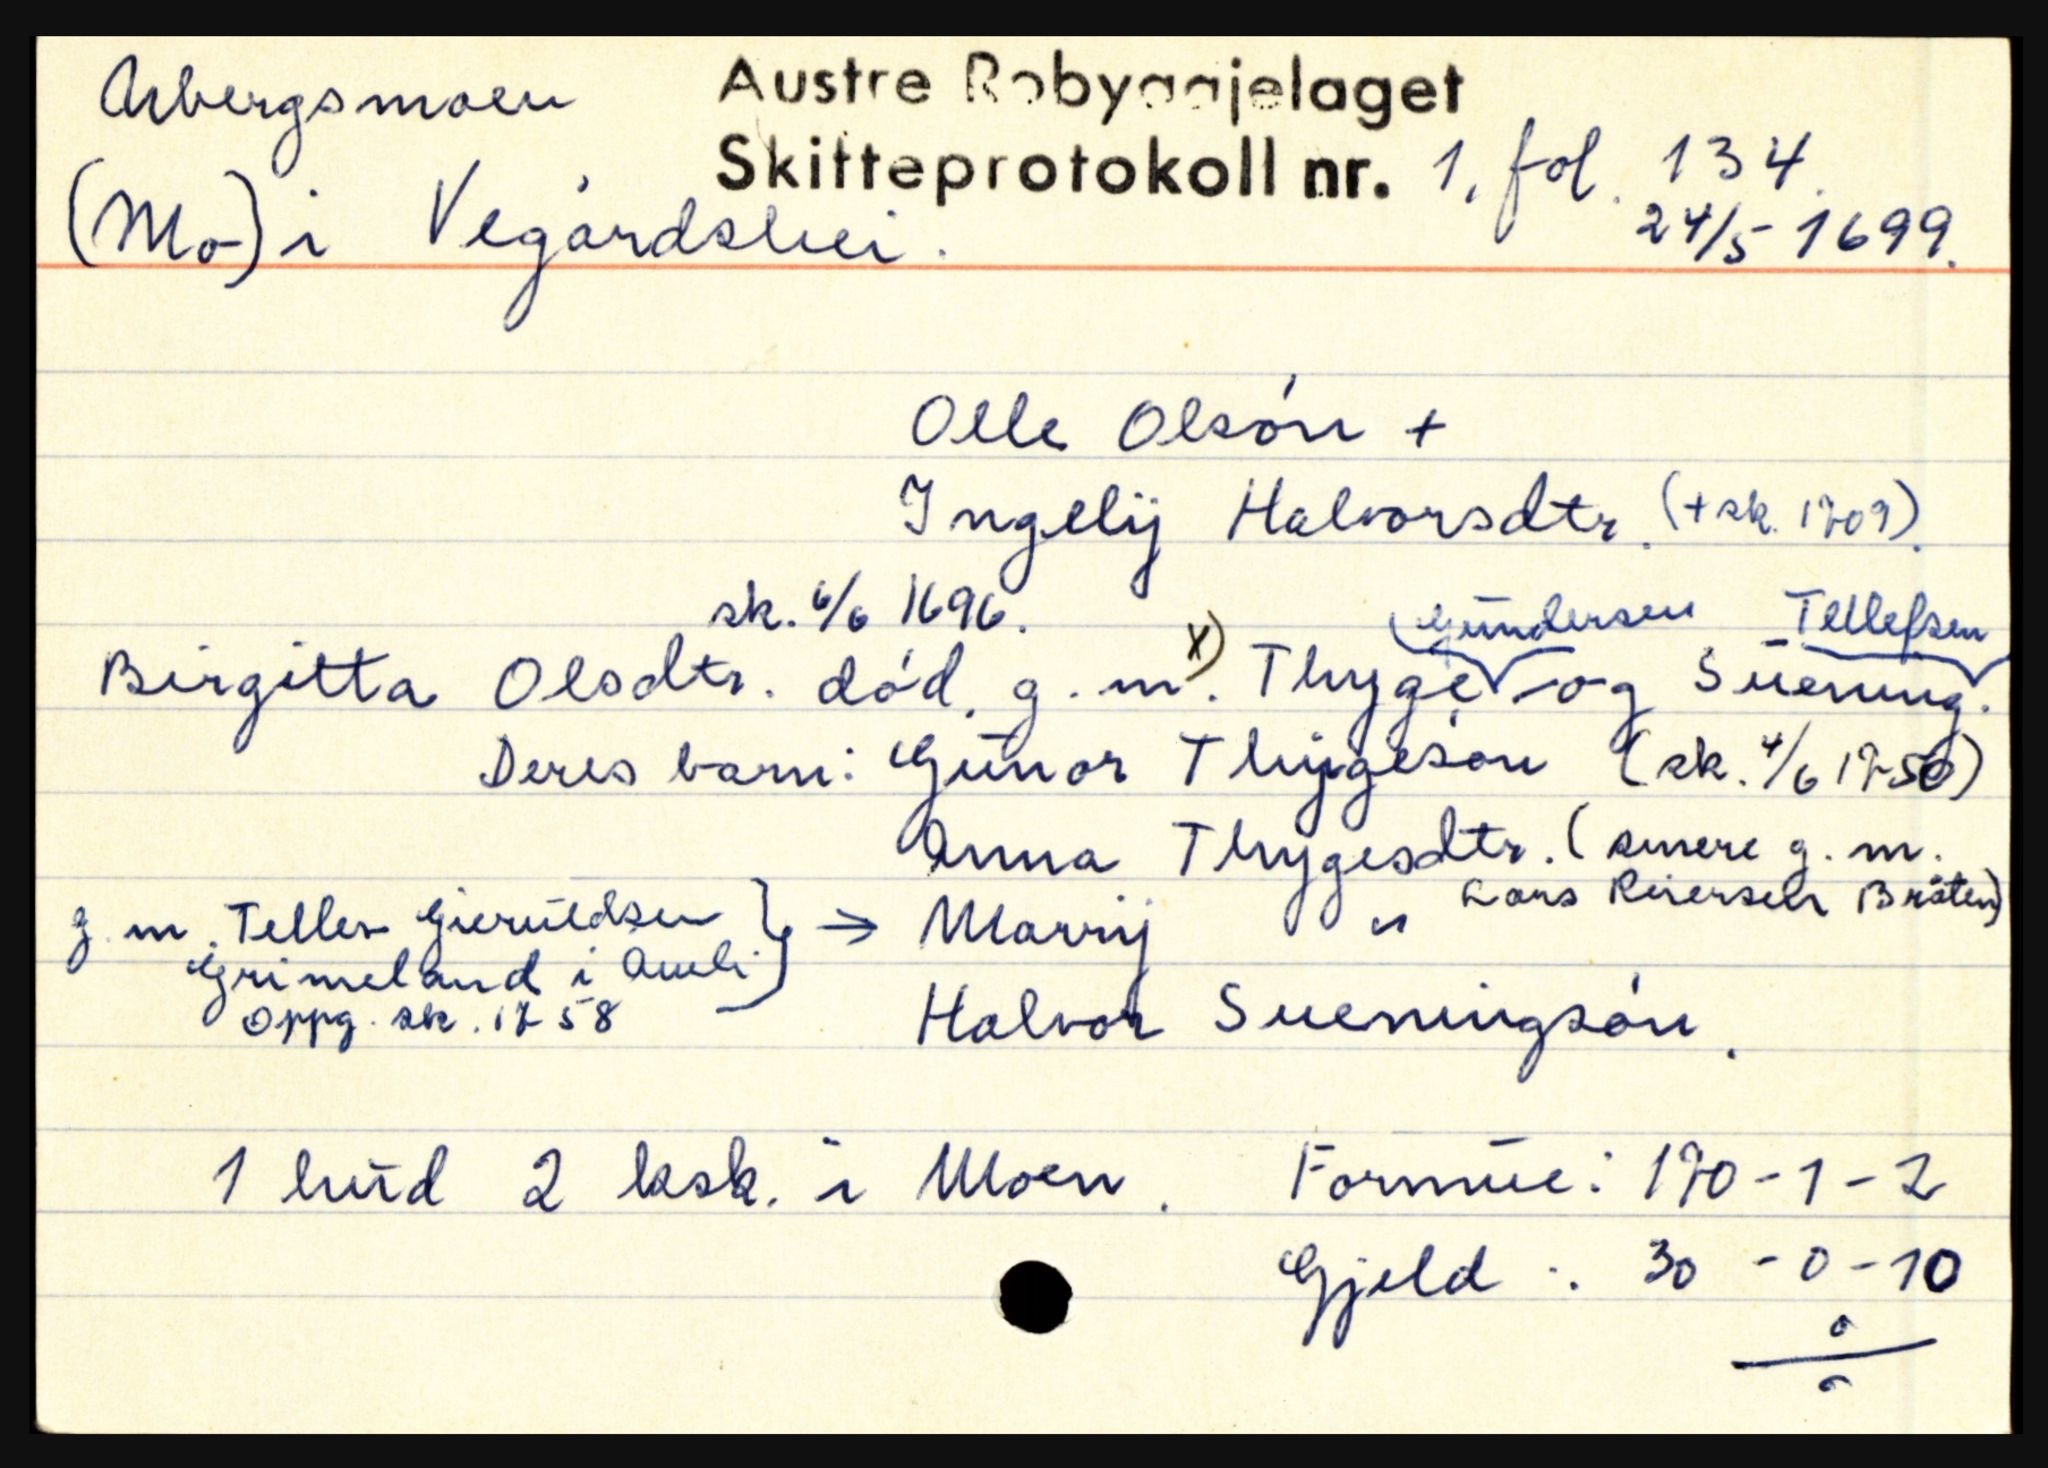 Arbergsmoen Austre Robyggjelaget
Skifteprotokoll nr. 1, fol. 134.
(Mo) i Vegårdshei. 24/5 1699.
Olle Olsón +
Ingelij Halvorsdtr. (+ sk. 1709).
sk. 6/6 1696. (Gúndersen Tellefsen
Birgitta Olsdtr. död, g. m. x) Thyge og Suening.
Deres barn: Gunor Thygesón (sk. 4/6 1750)
Anna Thygesdtr. (senere g. m.
Lars Reiersen Bråten)
g. m. Tellev Gieruldsen } → Marrij "
Grimeland i Åmli
Oppg. sk. 1758
Halvor Sueningsón.
1 hud 2 ksk. i Moen. Formue: 170-1-2
Gjeld: 30-0-10